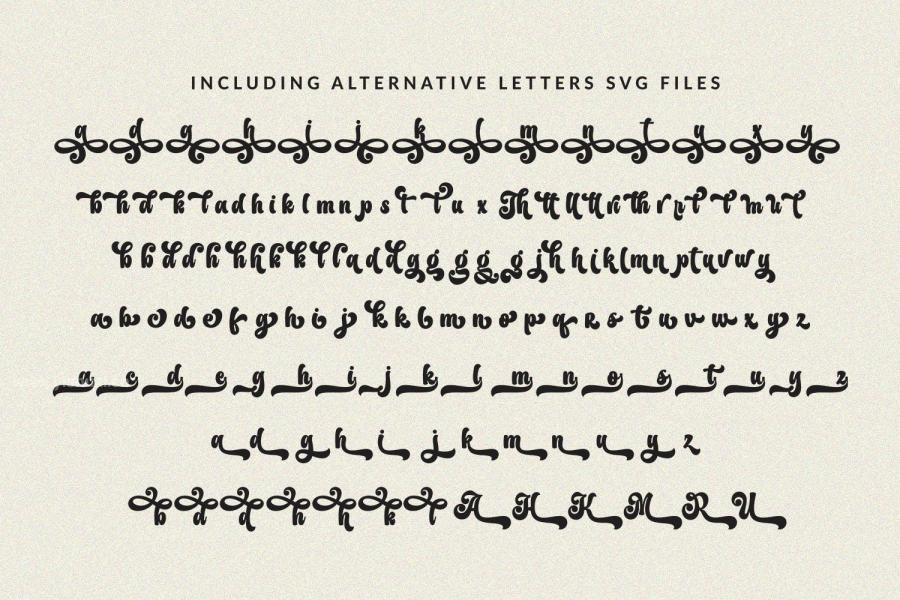 INCLUDING ALTERNATIVE LETTERS SVG FILES
a d g h i j k l m n t y x y
b h d k l a d h i k l m n p s t t u x Th tt ll tt rl th r r t t m u t
b b d d h h h k k l l a d d g g g g g j h h i k l m n p t u v w y
a b c d e f g h i j k k l m n o p q r s t u v w x y z
a c d e g h i j k l m n o s t u y z
a d g h i j k m n u y z
b d d h h k l A H K M R U